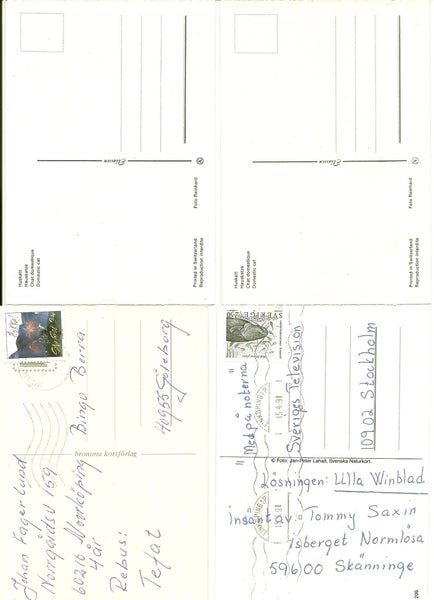 Huskatt
Hauskatze
Chat domestique
Domestic cat
Printed in Switzerland
Reproduction interdite
Foto Reinhard
Huskatt
Hauskatze
Chat domestique
Domestic cat
Printed in Switzerland
Reproduction interdite
Foto Reinhard
Johan Fagerlund
Norrgårdsv 159
60216 Norrköping
4år
Rebus:
Tefat
bromma kortförlag
Bingo Berra
40955 Göteborg
SVERIGE 250
15.4.91
"Med på noterna"
Sveriges Television
10902 Stockholm
© Foto: Jan-Peter Lahall, Svenska Naturkort.
Lösningen: Ulla Winblad
Insänt av: Tommy Saxin
Isberget Normlösa
59600 Skänninge